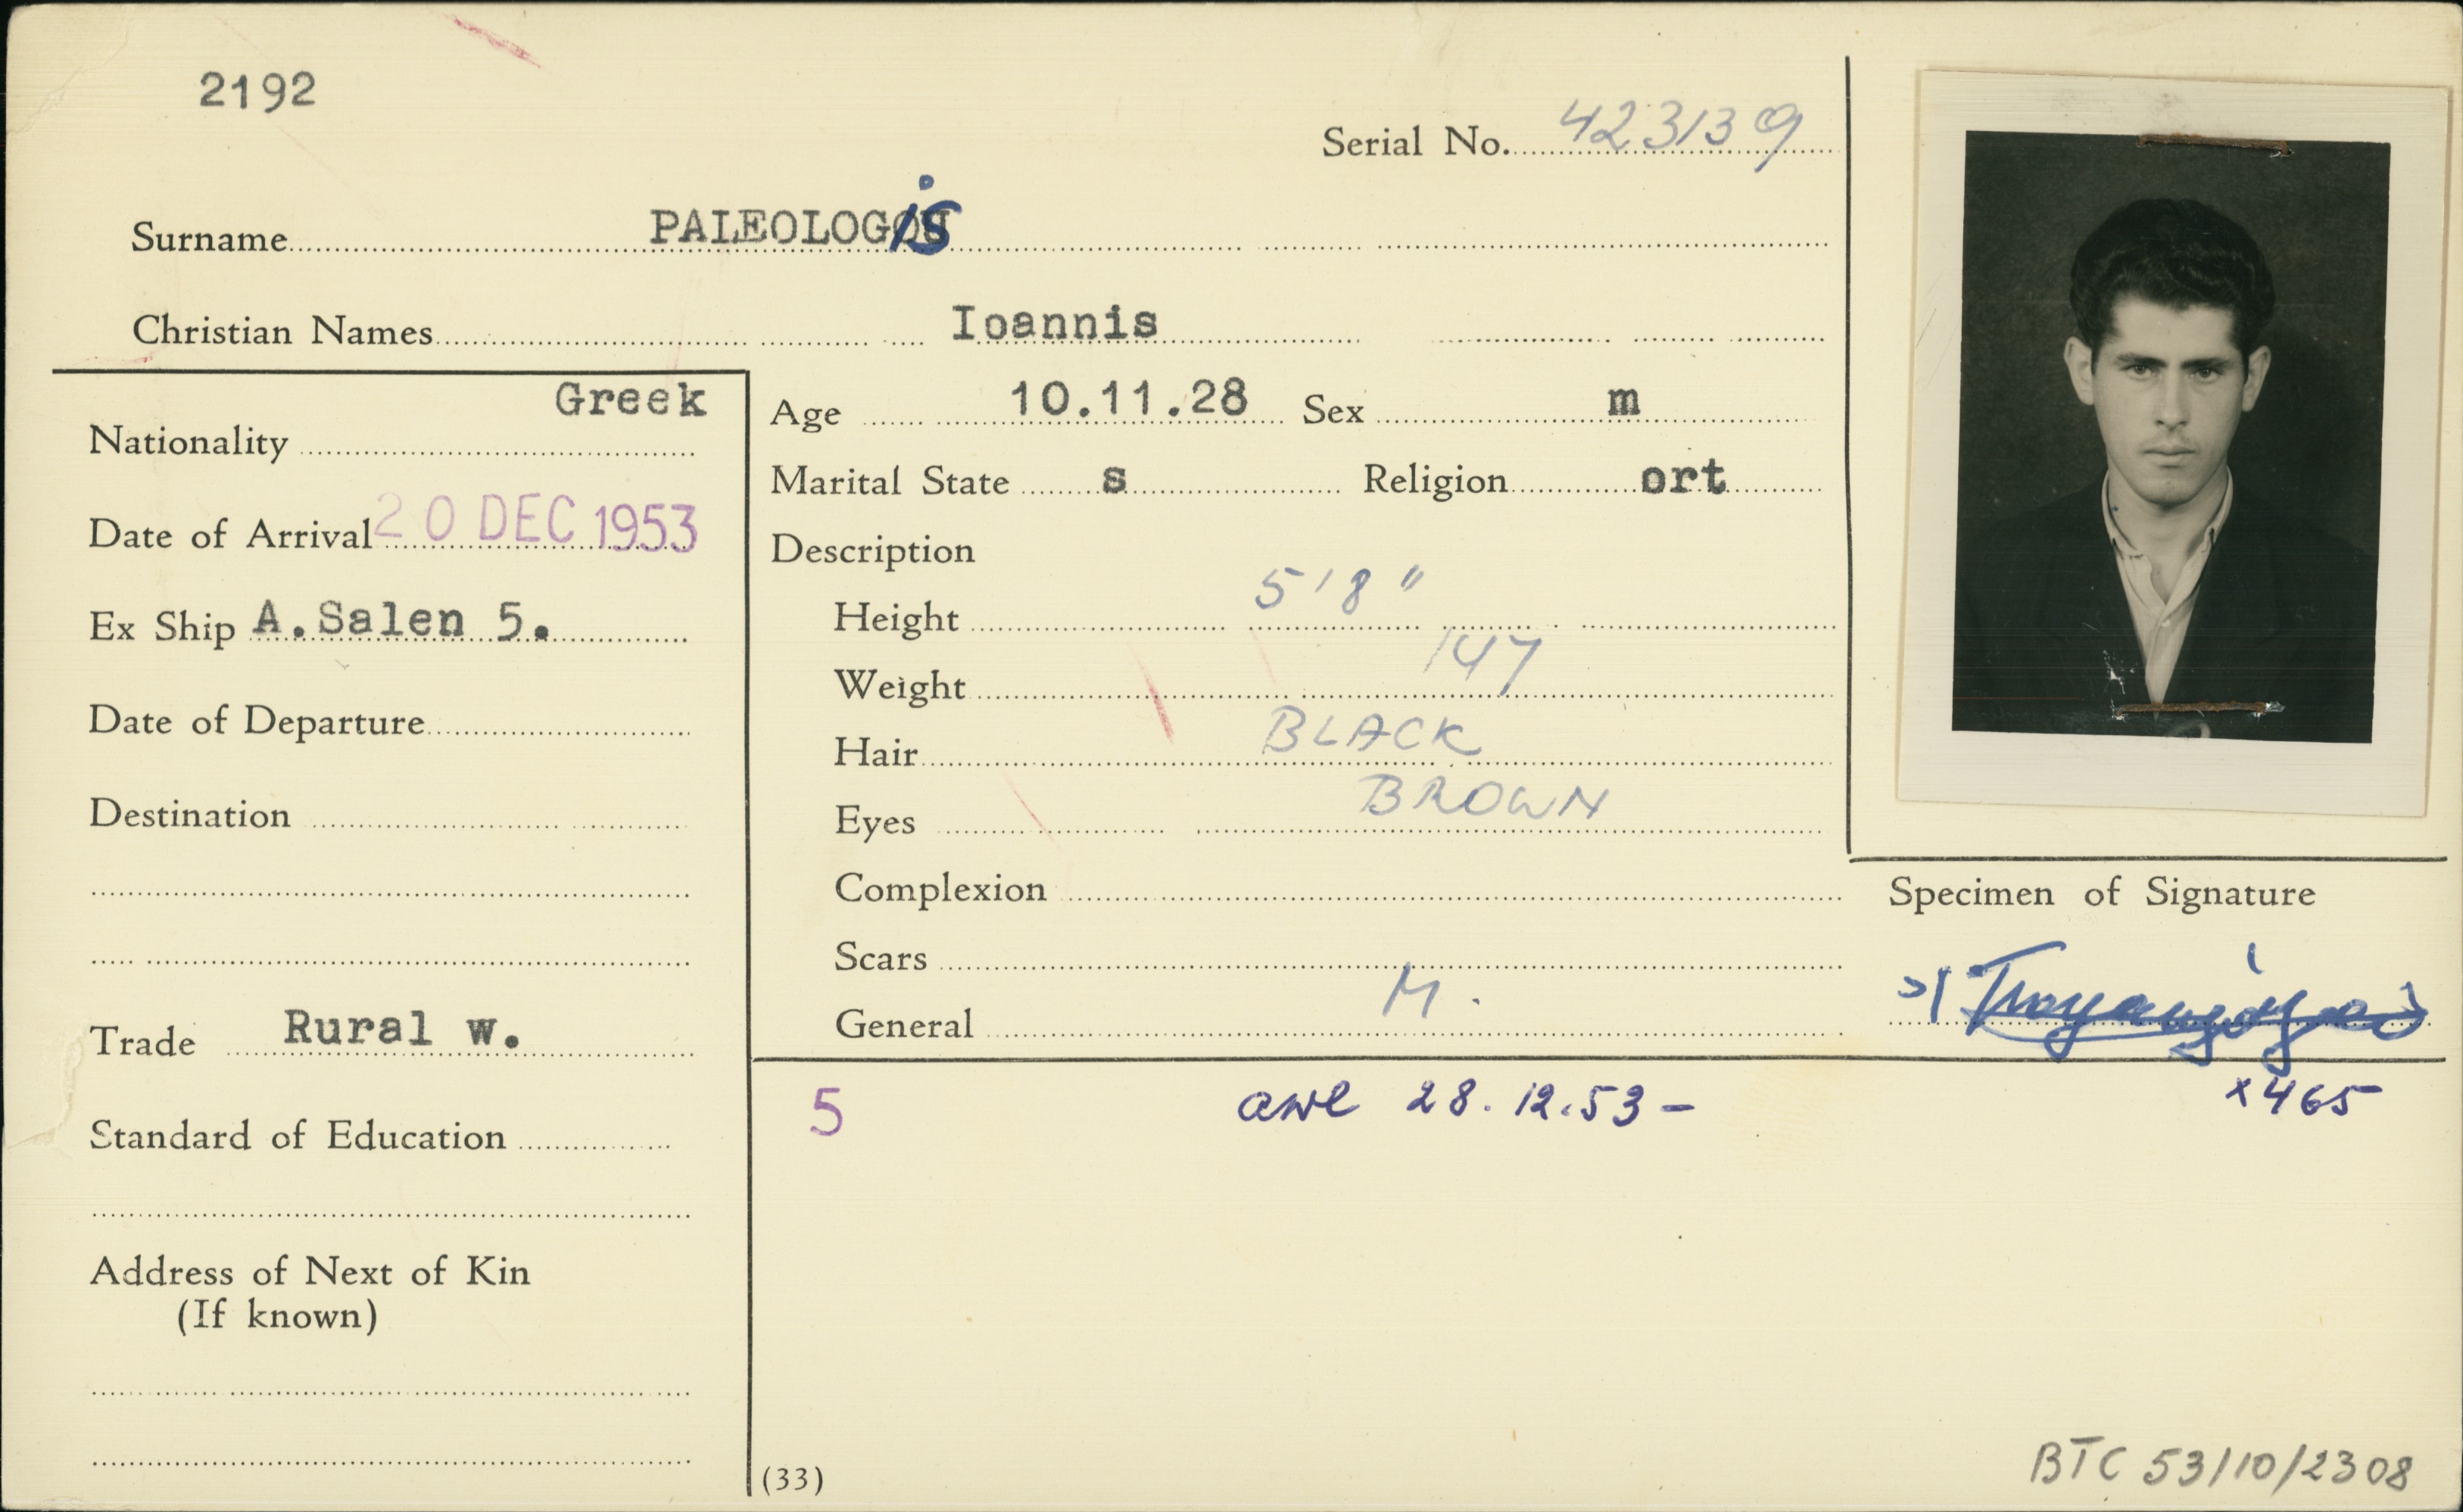 2192
Serial No. 423139
Surname PALEOLOGis
Christian Names Ioannis
Nationality Greek
Date of Arrival 20 DEC 1953
Ex Ship A.Salen 5.
Date of Departure
Destination
Trade Rural w.
Standard of Education
Address of Next of Kin
(If known)
Age 10.11.28 Sex m
Marital State s Religion ort
Description
Height 5'8"
Weight 147
Hair BLACK
Eyes BROWN
Complexion
Scars
General M.
Specimen of Signature
x465
5 awl 28.12.53-
(33)
BTC 53/10/2308